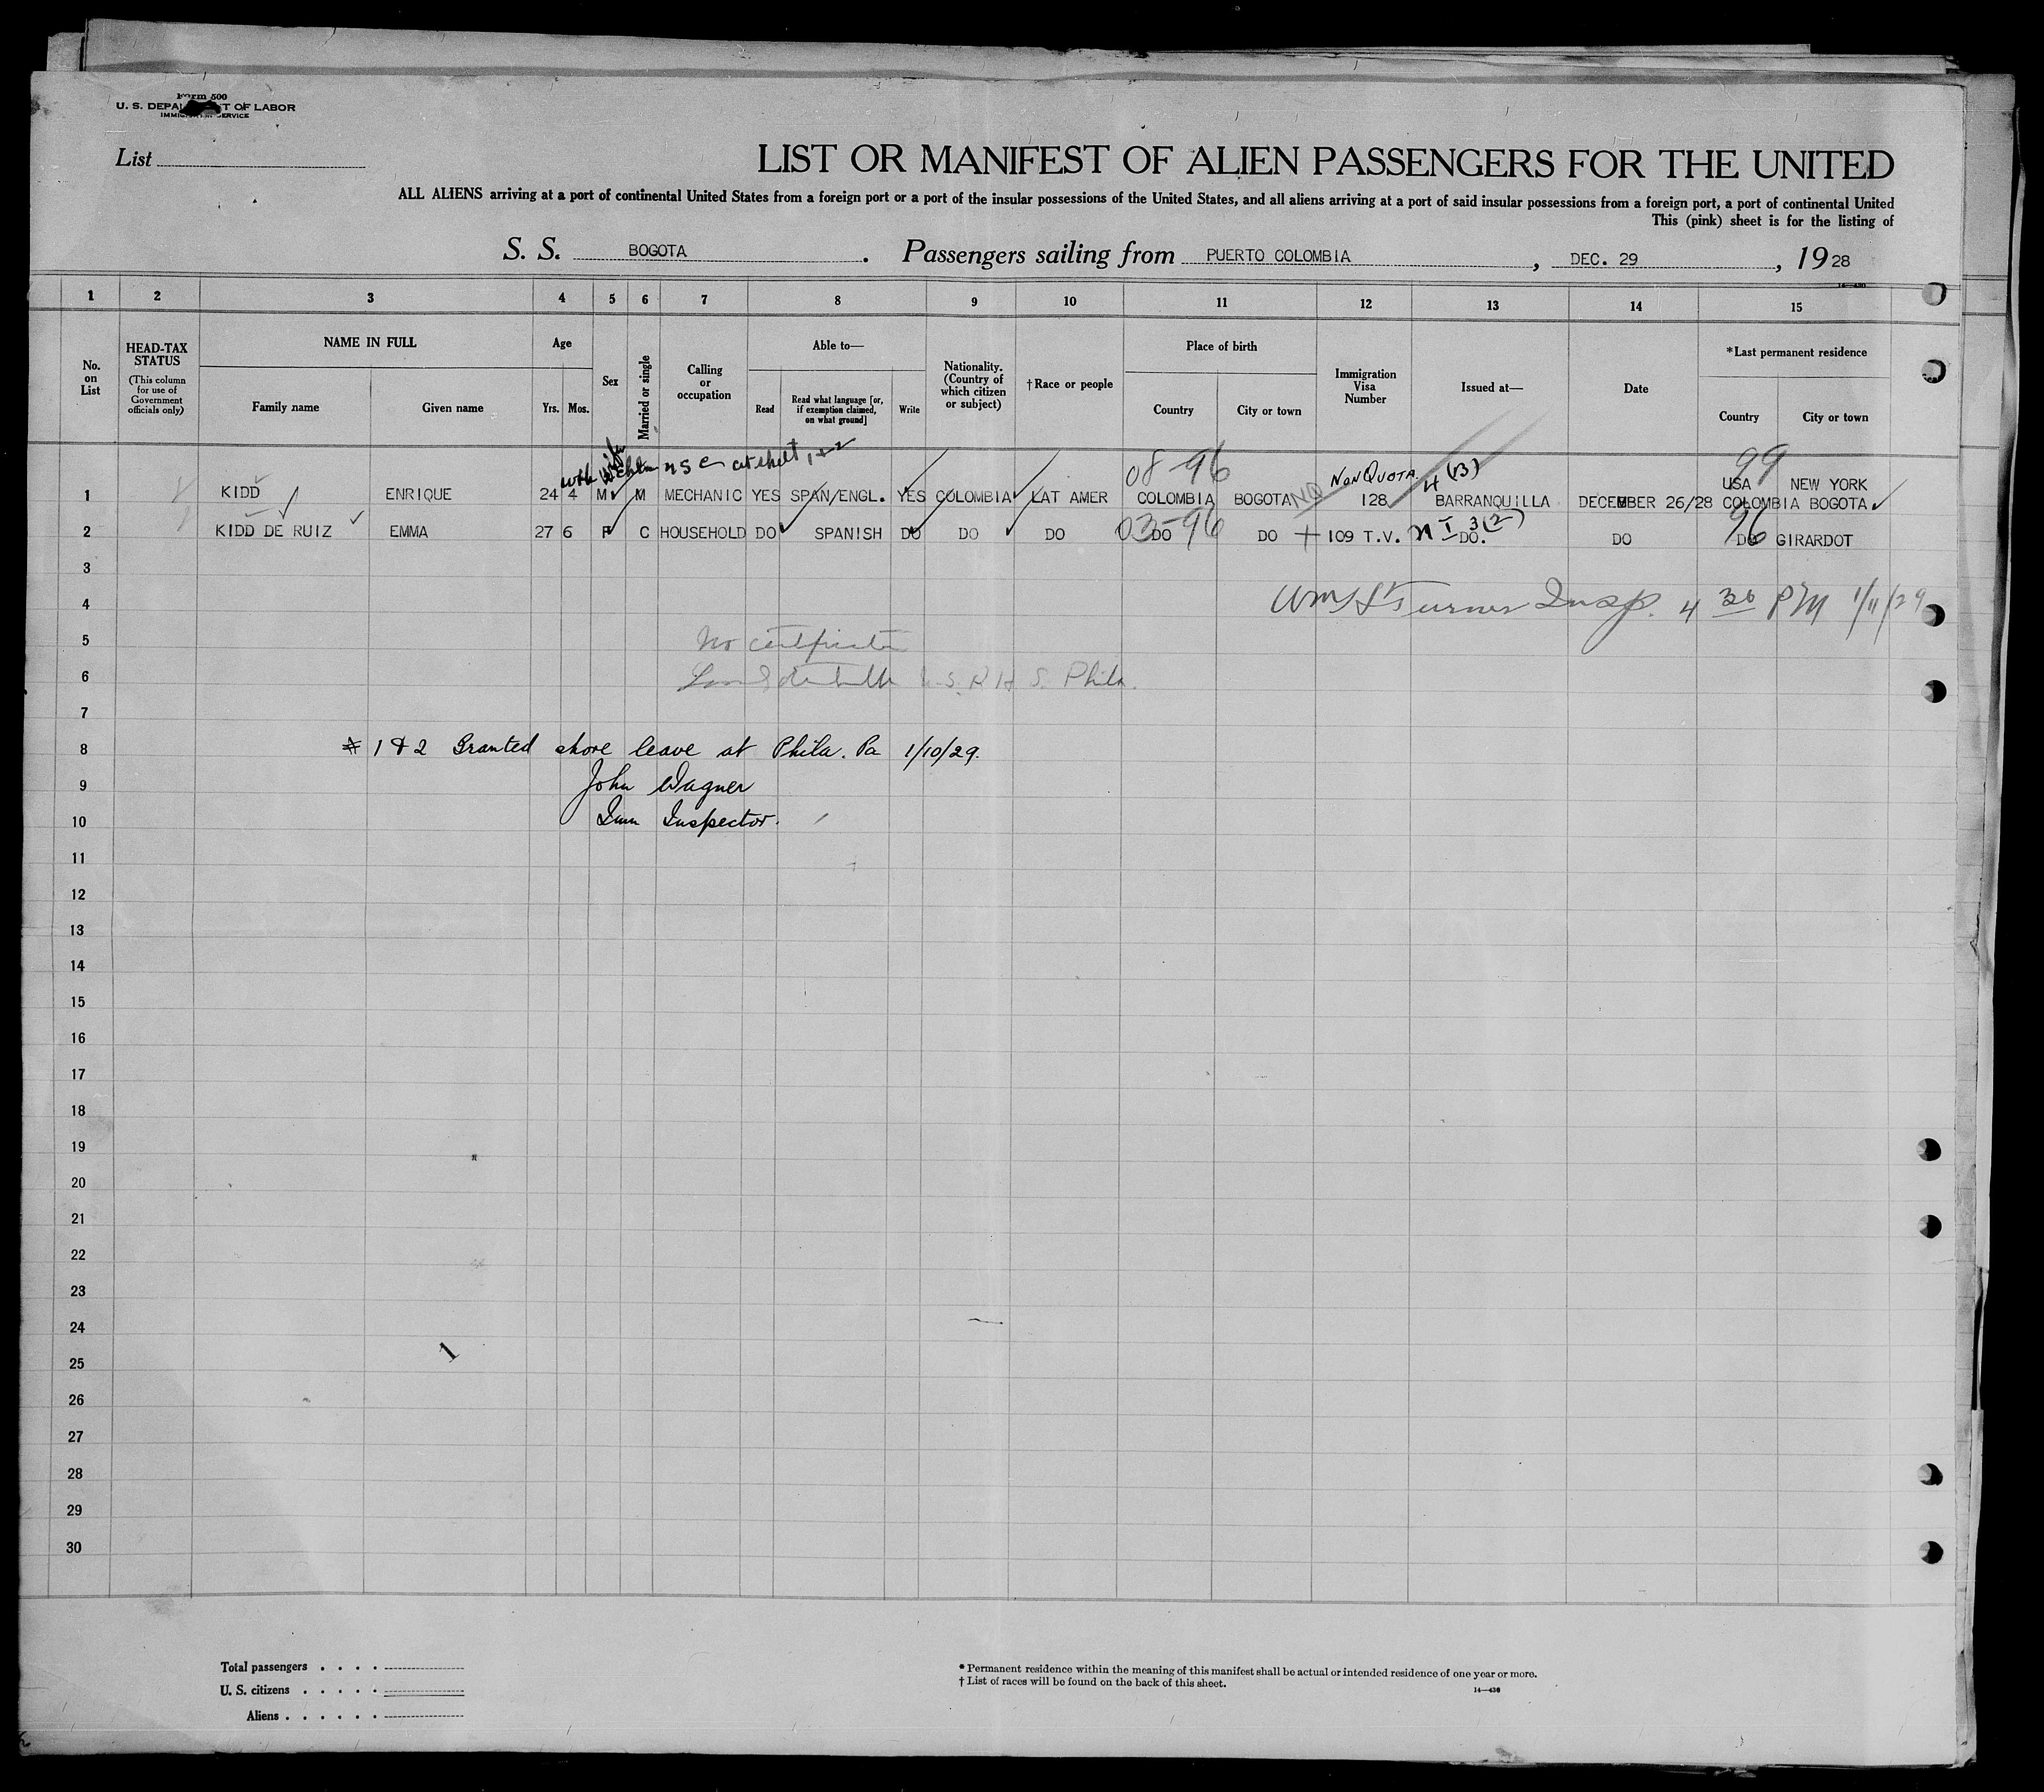 Form 500
U. S. DEPA T OF LABOR
IMMI SERVICE
List
LIST OR MANIFEST OF ALIEN PASSENGERS FOR THE UNITED
ALL ALIENS arriving at a port of continental United States from a foreign port or a port of the insular possessions of the United States, and all aliens arriving at a port of said insular possessions from a foreign port, a port of continental United
This (pink) sheet is for the listing of
S. S. BOGOTA . Passengers sailing from PUERTO COLOMBIA , DEC. 29 , 1928
14—430
1 2 3 4 5 6 7 8 9 10 11 12 13 14 15
No. on List
HEAD-TAX STATUS
(This column for use of Government officials only)
NAME IN FULL
Family name Given name
Age
Yrs. Mos.
Sex
Married or single
Calling or occupation
Able to—
Read
Read what language [or, if exemption claimed, on what ground]
Write
Nationality. (Country of which citizen or subject)
†Race or people
Place of birth
Country City or town
Immigration Visa Number
Issued at—
Date
*Last permanent residence
Country City or town
with wife
08-96 NonQuota 4 (B) 99
USA NEW YORK
1 KIDD ENRIQUE 24 4 M M MECHANIC YES SPAN/ENGL. YES COLOMBIA LAT AMER COLOMBIA BOGOTA NQ 128 BARRANQUILLA DECEMBER 26/28 COLOMBIA BOGOTA
03-96 3(2) 96
2 KIDD DE RUIZ EMMA 27 6 F C HOUSEHOLD DO SPANISH DO DO DO DO DO 109 T.V. DO. DO DO GIRARDOT
3
4 Turner Insp. 4 30 PM 1/11/29
5 No
6 S. Phila.
7
8 # 1 & 2 Granted shore leave at Phila. Pa 1/10/29.
9 John Wagner
10 Imm Inspector.
11
12
13
14
15
16
17
18
19
20
21
22
23
24
1
25
26
27
28
29
30
Total passengers . . . .
U. S. citizens . . . . .
Aliens . . . . . .
* Permanent residence within the meaning of this manifest shall be actual or intended residence of one year or more.
† List of races will be found on the back of this sheet.
14—430